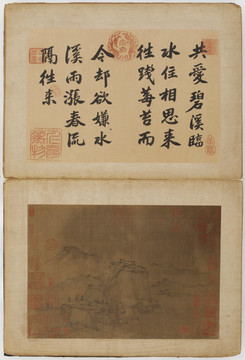 共愛碧溪臨
水住相思來
往踐莓苔而
今却欲嫌水
溪雨漲春流
隔往來